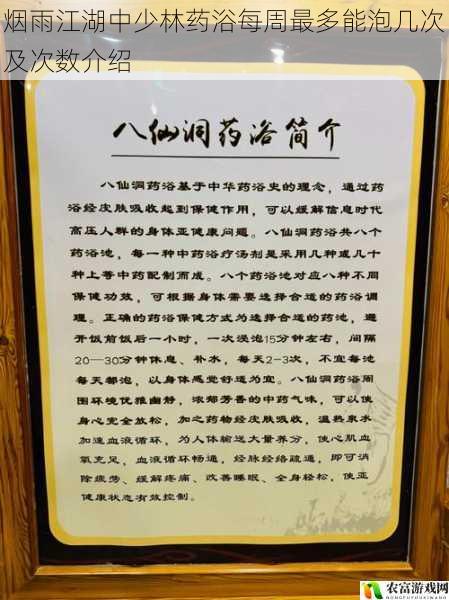 烟雨江湖中少林药浴每周最多能泡几次
及次数介绍
八仙洞药浴简介
八仙洞药浴基于中华药浴史的理念，通过药
浴经皮肤吸收起到保健作用，可以缓解信息时代
高压人群的身体亚健康问题。八仙洞药浴共八个
药浴池，每一种中药浴疗汤剂是采用几种或几十
种上等中药配制而成。八个药浴池对应八种不同
保健功效，可根据身体需要选择合适的药浴调
理。正确的药浴保健方式为选择合适的药池，避
开饭前饭后一小时，一次浸泡15分钟左右，间隔
20—30分钟休息、补水，每天2-3次，不宜每池
每天都泡，以身体感觉舒适为宜。八仙洞药浴周
围环境优雅幽静，浓郁芳香的中药气味，可以使
身心完全放松，加之药物经皮肤吸收，温热泉水
加速血液循环，为人体输送大量养分，使心肌血
氧充足，血液循环畅通，经脉经络疏通，即可消
除疲劳、缓解疼痛、改善睡眠、全身轻松，使亚
健康状态有效控制。
农富游戏网
NONGFUYOUXIWANG